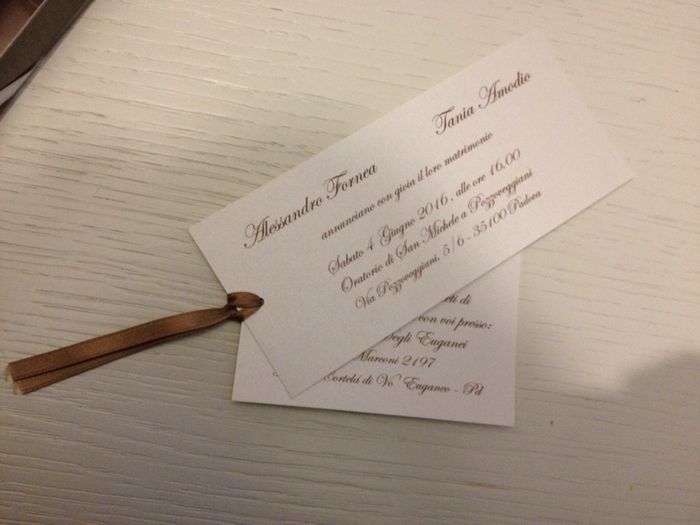 Alessandro Fornea
Tania Amodio
annunciano con gioia il loro matrimonio
Sabato 4 Giugno 2016, alle ore 16,00
Oratorio di San Michele a Pozzoveggiani
Via Pozzoveggiani, 5/6 - 35100 Padova
di
con voi presso:
Degli Euganei
Marconi 2197
Cortelá di Vo' Euganeo - Pd